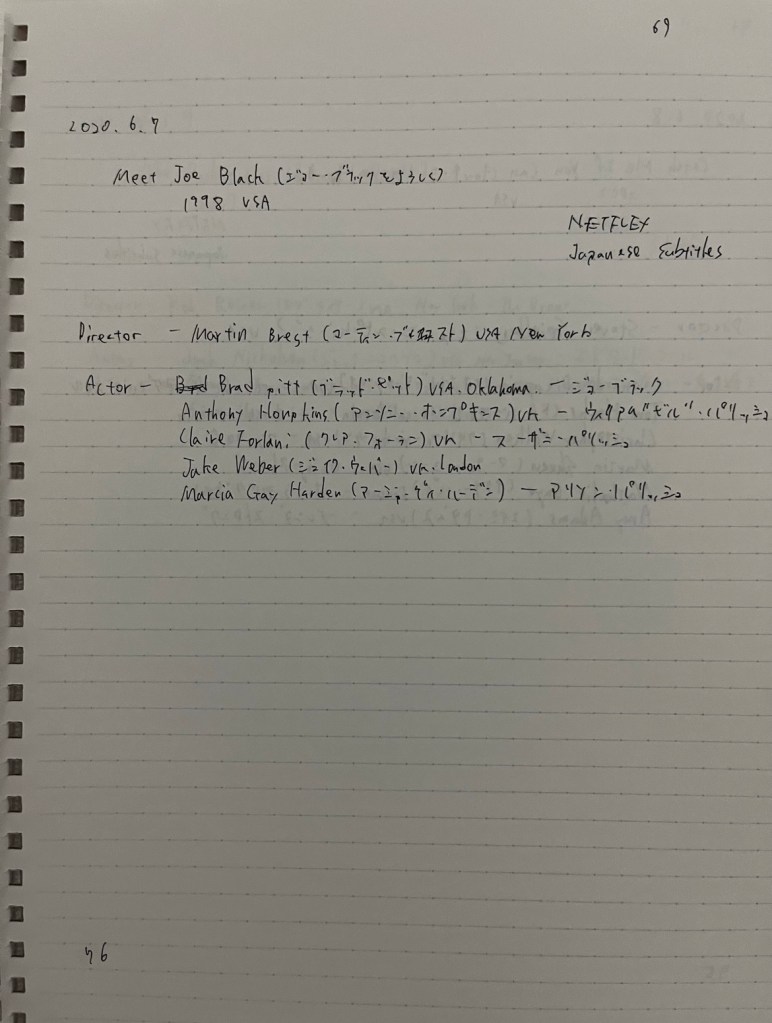 69
2020.6.7
Meet Joe Black (ジョー・ブラックをよろしく)
1998 USA
NETFLEX
Japanese Subtitles
Director - Martin Brest (マーティン・ブレスト) USA New York
Actor - Brad pitt (ブラッド・ピット) USA. Oklahoma. - ジョー・ブラック
Anthony Hompkins (アンソニー・ホンプキンス) UK -
Claire Forlani (クレア・フォーラニ) UK - スーザン・パリッシュ
Jake Weber (ジェイク・ウェバー) UK. London
Marcia Gay Harden (マーシャ・ゲイ・ハーデン) - アリソン・パリッシュ
76